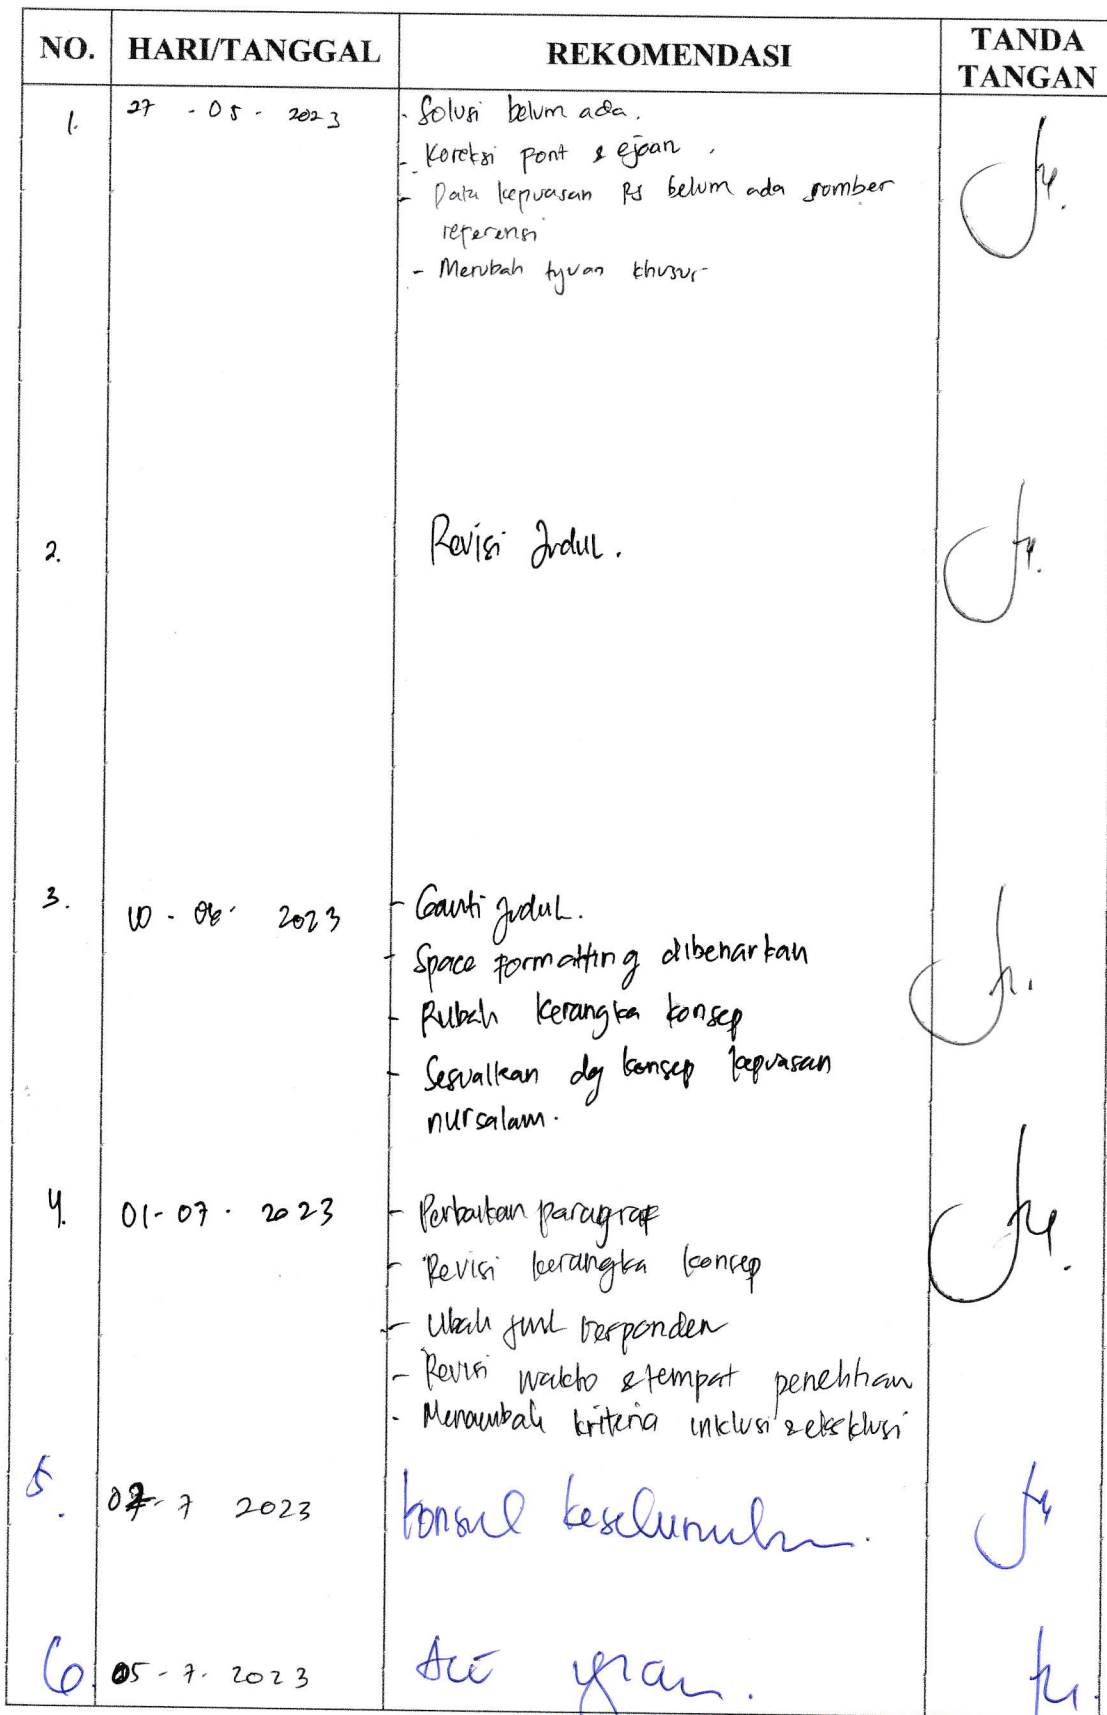 NO. HARI/TANGGAL REKOMENDASI TANDA TANGAN
1. 27 - 05 - 2023 - Solusi belum ada.
- Koreksi font & ejaan.
- Data kepuasan RS belum ada sumber
referensi
- Merubah tujuan khusus
2. Revisi Judul.
3. 10 - 06 - 2023 - Ganti judul.
- Space formatting dibenarkan
- Rubah kerangka konsep
- Sesuaikan dg konsep kepuasan
nursalam.
4. 01-07-2023 - Perbaikan paragraf
- Revisi kerangka konsep
- Ubah juml responden
- Revisi waktu & tempat penelitian
- Menambah kriteria inklusi & eksklusi
5. 7 2023 konsul keseluruhan.
6. 05-7-2023 Acc ujian.